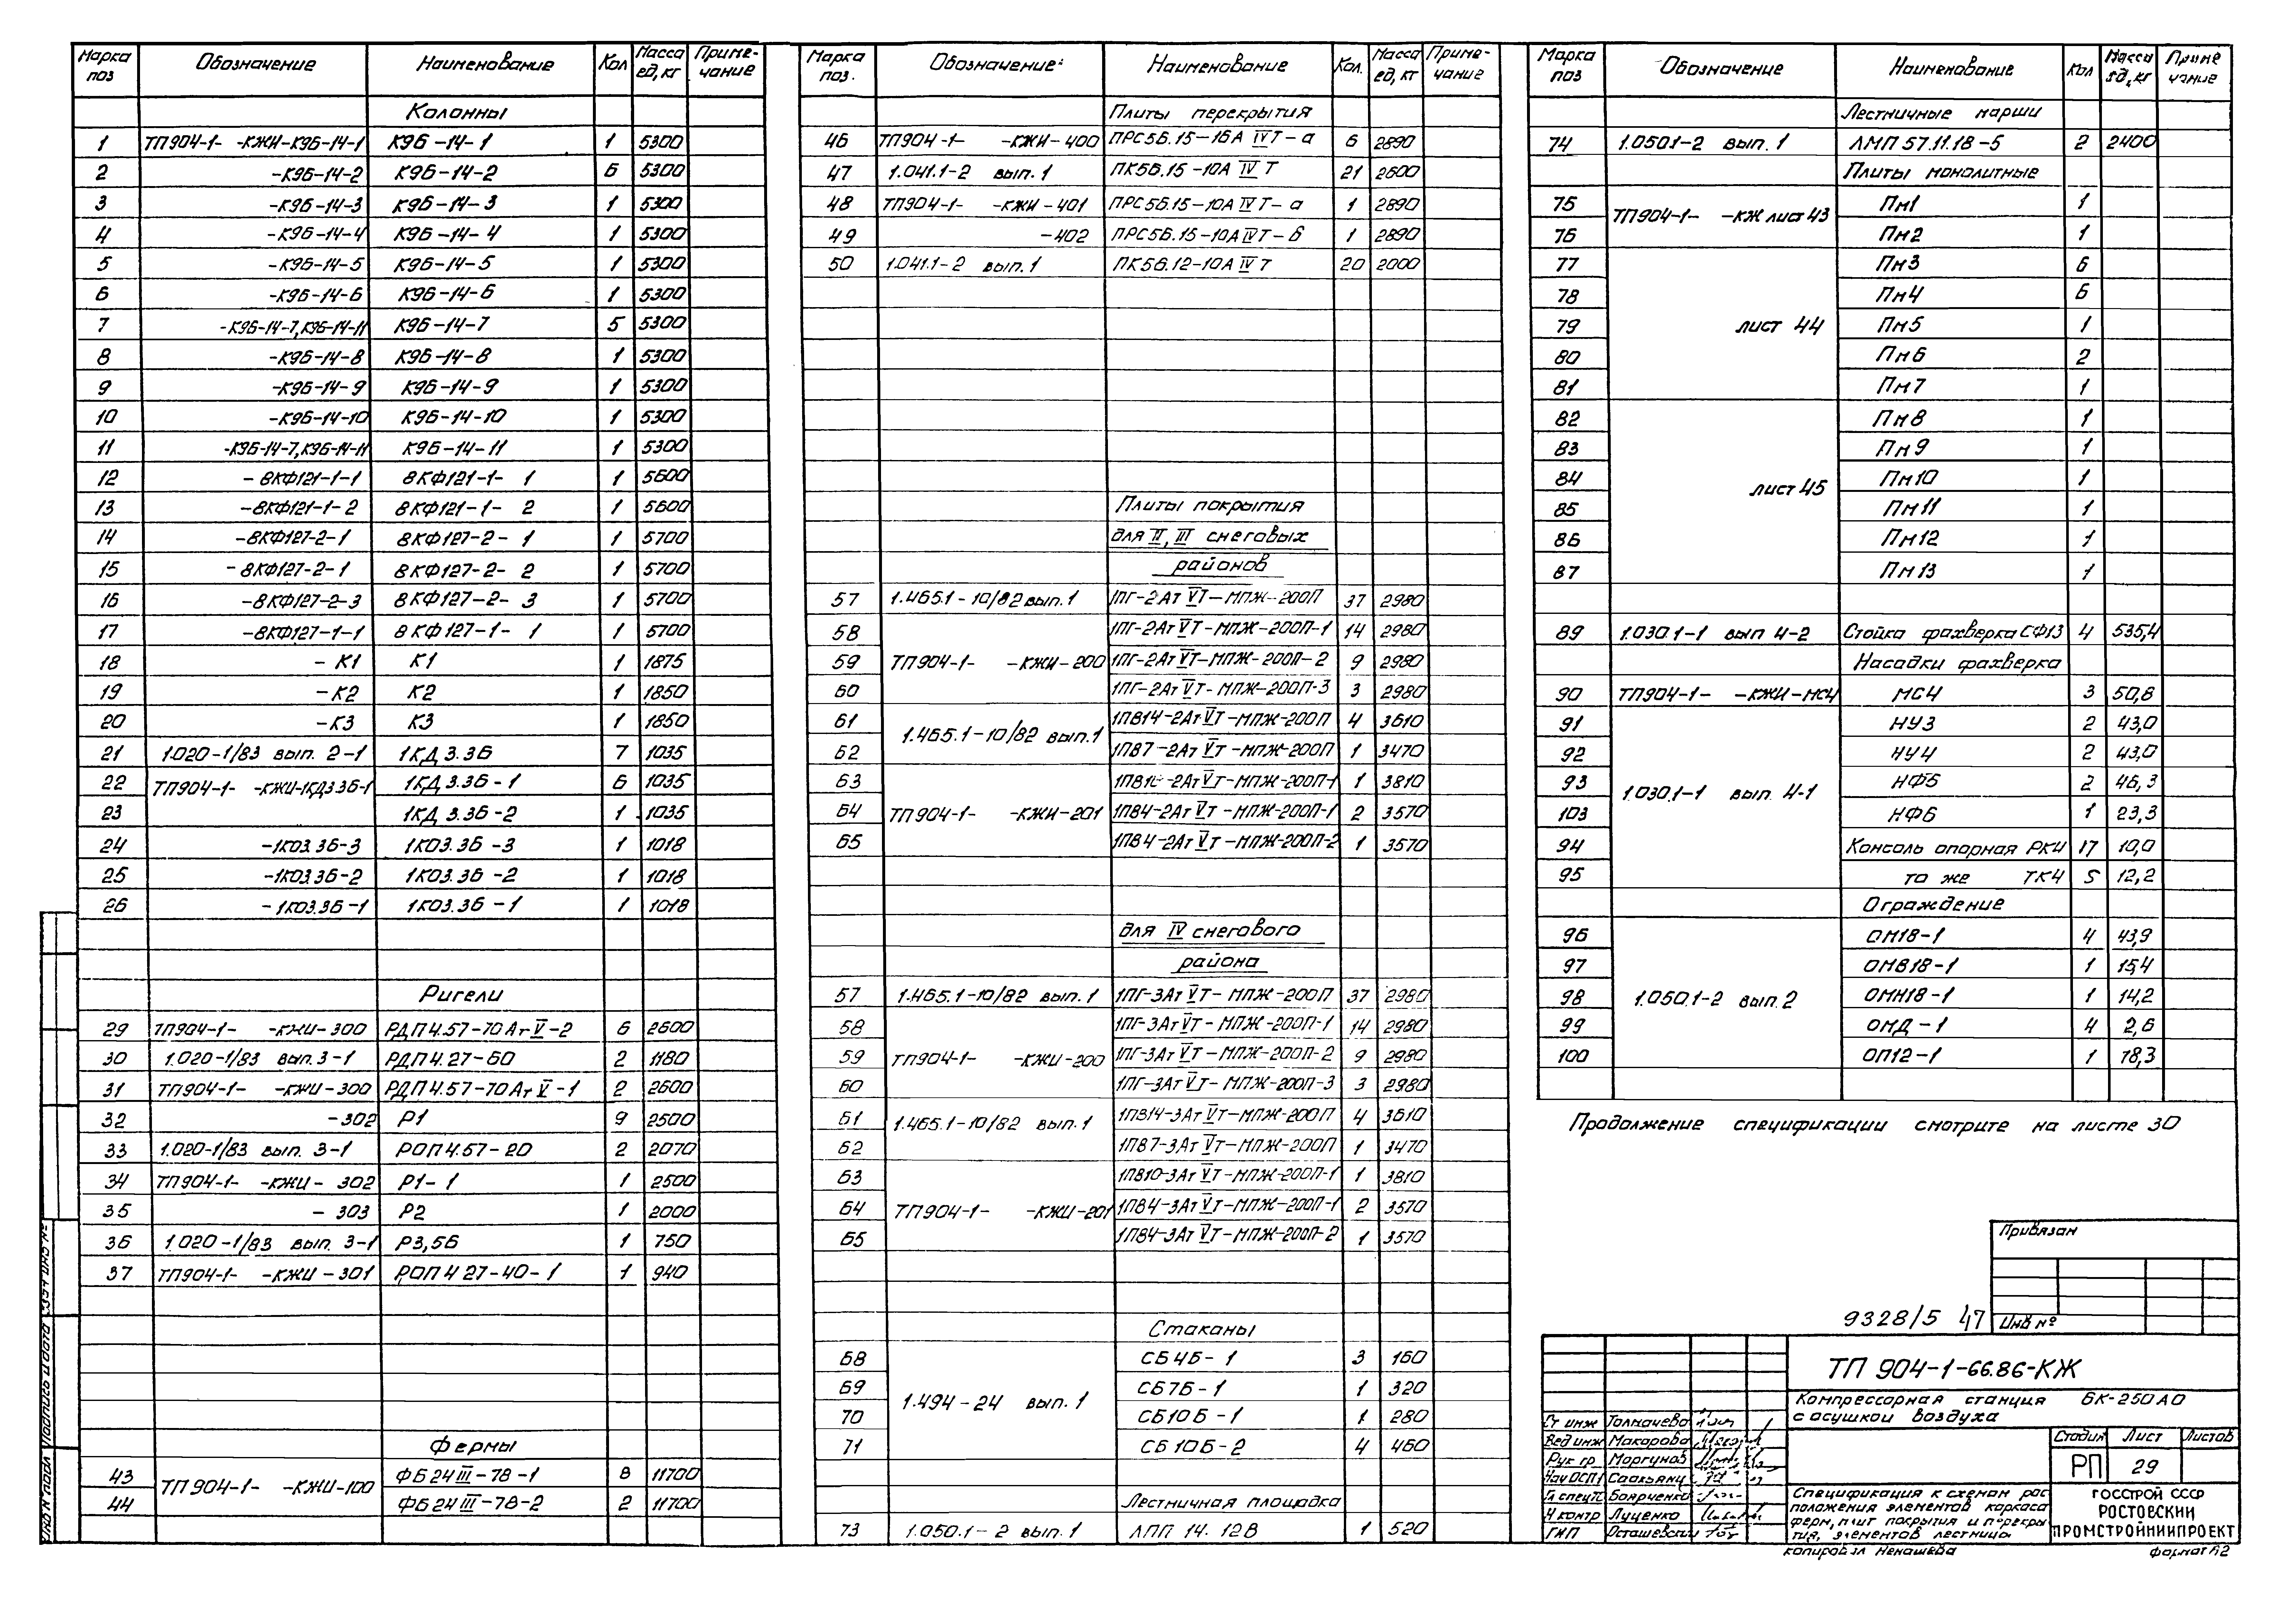 Марка поз Обозначение Наименование Кол Масса ед,кг Приме-чание
Колонны
1 ТП904-1- -КЖИ-К96-14-1 К96-14-1 1 5300
2 -К96-14-2 К96-14-2 6 5300
3 -К96-14-3 К96-14-3 1 5300
4 -К96-14-4 К96-14-4 1 5300
5 -К96-14-5 К96-14-5 1 5300
6 -К96-14-6 К96-14-6 1 5300
7 -К96-14-7,К96-14-11 К96-14-7 5 5300
8 -К96-14-8 К96-14-8 1 5300
9 -К96-14-9 К96-14-9 1 5300
10 -К96-14-10 К96-14-10 1 5300
11 -К96-14-7,К96-14-11 К96-14-11 1 5300
12 -8КФ121-1-1 8КФ121-1-1 1 5600
13 -8КФ121-1-2 8КФ121-1-2 1 5600
14 -8КФ127-2-1 8КФ127-2-1 1 5700
15 -8КФ127-2-1 8КФ127-2-2 1 5700
16 -8КФ127-2-3 8КФ127-2-3 1 5700
17 -8КФ127-1-1 8КФ127-1-1 1 5700
18 -К1 К1 1 1875
19 -К2 К2 1 1850
20 -К3 К3 1 1850
21 1.020-1/83 вып. 2-1 1КД 3.36 7 1035
22 ТП904-1- -КЖИ-1КД3.36-1 1КД 3.36-1 6 1035
23 1КД 3.36-2 1 1035
24 -1КО3.36-3 1КО3.36-3 1 1018
25 -1КО3.36-2 1КО3.36-2 1 1018
26 -1КО3.36-1 1КО3.36-1 1 1018
Ригели
29 ТП904-1- -КЖИ-300 РДП4.57-70АтV-2 6 2600
30 1.020-1/83 вып.3-1 РДП4.27-60 2 1180
31 ТП904-1- -КЖИ-300 РДП4.57-70АтV-1 2 2600
32 -302 Р1 9 2500
33 1.020-1/83 вып. 3-1 РОП4.57-20 2 2070
34 ТП904-1- -КЖИ-302 Р1-1 1 2500
35 -303 Р2 1 2000
36 1.020-1/83 вып. 3-1 Р3,56 1 750
37 ТП904-1- -КЖИ-301 РОП4 27-40-1 1 940
Фермы
43 ТП904-1- -КЖИ-100 ФБ24III-78-1 8 11700
44 ФБ24III-78-2 2 11700
Марка поз. Обозначение Наименование Кол. Масса ед,кг Приме-чание
Плиты перекрытия
46 ТП904-1- -КЖИ-400 ПРС56.15-16А IVТ-а 6 2890
47 1.041.1-2 вып.1 ПК56.15-10А IVТ 21 2600
48 ТП904-1- -КЖИ-401 ПРС56.15-10А IVТ-а 1 2890
49 -402 ПРС56.15-10А IVТ-б 1 2890
50 1.041.1-2 вып.1 ПК56.12-10А IVТ 20 2000
Плиты покрытия
для II, III снеговых
районов
57 1.465.1-10/82 вып.1 1ПГ-2АтVТ-МПЖ-200П 37 2980
58 1ПГ-2АтVТ-МПЖ-200П-1 14 2980
59 ТП904-1- -КЖИ-200 1ПГ-2АтVТ-МПЖ-200П-2 9 2980
60 1ПГ-2АтVТ-МПЖ-200П-3 3 2980
61 1.465.1-10/82 вып.1 1ПВ14-2АтVТ-МПЖ-200П 4 3610
62 1ПВ7-2АтVТ-МПЖ-200П 1 3470
63 1ПВ10-2АтVТ-МПЖ-200П-1 1 3810
64 ТП904-1- -КЖИ-201 1ПВ4-2АтVТ-МПЖ-200П-1 2 3570
65 1ПВ4-2АтVТ-МПЖ-200П-2 1 3570
для IV снегового
района
57 1.465.1-10/82 вып.1 1ПГ-3АтVТ-МПЖ-200П 37 2980
58 1ПГ-3АтVТ-МПЖ-200П-1 14 2980
59 ТП904-1- -КЖИ-200 1ПГ-3АтVТ-МПЖ-200П-2 9 2980
60 1ПГ-3АтVТ-МПЖ-200П-3 3 2980
61 1.465.1-10/82 вып.1 1ПВ14-3АтVТ-МПЖ-200П 4 3610
62 1ПВ7-3АтVТ-МПЖ-200П 1 3470
63 1ПВ10-3АтVТ-МПЖ-200П-1 1 3810
64 ТП904-1- -КЖИ-201 1ПВ4-3АтVТ-МПЖ-200П-1 2 3570
65 1ПВ4-3АтVТ-МПЖ-200П-2 1 3570
Стаканы
68 СБ4Б-1 3 160
69 1.494-24 вып.1 СБ7Б-1 1 320
70 СБ10Б-1 1 280
71 СБ10Б-2 4 460
Лестничная площадка
73 1.050.1-2 вып.1 ЛПП 14.12В 1 520
Марка поз Обозначение Наименование Кол Масса ед,кг Приме чание
Лестничные марши
74 1.050.1-2 вып.1 ЛМП 57.11.18-5 2 2400
Плиты монолитные
75 ТП904-1- -КЖ лист 43 Пм1 1
76 Пм2 1
77 Пм3 6
78 Пм4 6
79 лист 44 Пм5 1
80 Пм6 2
81 Пм7 1
82 Пм8 1
83 Пм9 1
84 лист 45 Пм10 1
85 Пм11 1
86 Пм12 1
87 Пм13 1
89 1.030.1-1 вып 4-2 Стойка фахверка СФ13 4 535,4
Насадки фахверка
90 ТП904-1- -КЖИ-МС4 МС4 3 50,8
91 НУ3 2 43,0
92 НУ4 2 43,0
93 1.030.1-1 вып. 4-1 НФ5 2 46,3
103 НФ6 1 23,3
94 Консоль опорная РК4 17 10,0
95 то же ТК4 5 12,2
Ограждение
96 ОМ18-1 4 43,9
97 ОМВ18-1 1 15,4
98 1.050.1-2 вып.2 ОМН18-1 1 14,2
99 ОМД-1 4 2,6
100 ОП12-1 1 18,3
Продолжение спецификации смотрите на листе 30
Привязан
Инв №
9328/5 47
ТП 904-1-66.86-КЖ
Компрессорная станция 6К-250АО
с осушкой воздуха
Ст инж Толмачева
Вед инж Макарова
Рук гр Моргунов
Нач ОСП1 Саакьянц
Гл спец Боярченко
Н контр Луценко
ГИП Осташевский
Стадия Лист Листов
РП 29
Спецификация к схемам рас
положения элементов каркаса
ферм, плит покрытия и перекры
тия, элементов лестницы
ГОССТРОЙ СССР
РОСТОВСКИЙ
ПРОМСТРОЙНИИПРОЕКТ
Копировал Ненашева формат А2